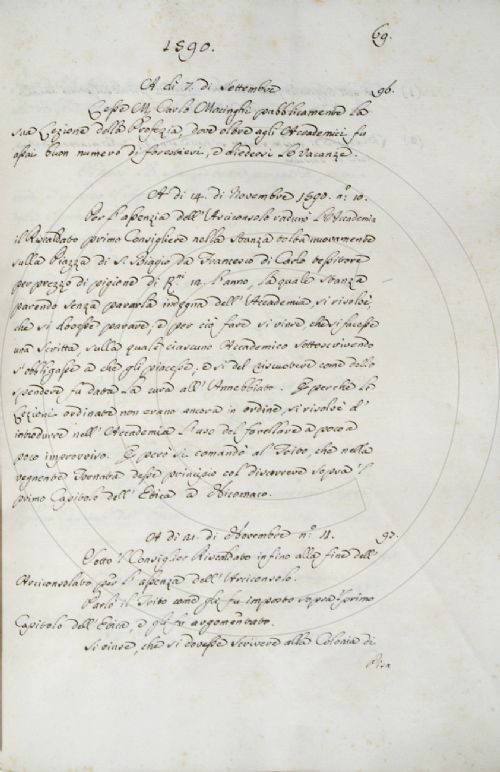 69.
1590.
A di 7. di Settembre 96.
Lesse M. Carlo Macinghi pubblicamente la
sua Lezione della Profezia, dove oltre agli Accademici fu
assai buon numero di forestieri, e diedersi le Vacanze.
A di 14. di Novembre 1590. n.º 10.
Per l'assenzia dell'Arciconsolo radunò l'Accademia
il Riscaldato primo Consigliere nella stanza tolta nuovamente
sulla Piazza di S. Biagio da Francesco di Carlo
per prezzo di pigione di 12. l'anno, la quale stanza
parendo senza pararla indegna dell'Accademia si risolvè
che si dovesse parare; e per ciò fare si vinse, che si facesse
una scritta, sulla quale ciascuno Accademico sottoscrivendo
s'obbligasse a che gli piacesse, e sì del riscuotere come dello
spendere fu data la cura all'Annebbiato. E perchè le
Lezioni ordinate non erano ancora in ordine si risolvè d'
introdurre nell'Accademia l'uso del favellare a poco a
poco improvviso. E però si comandò al Trito, che nella
vegnente Tornata desse principio col discorrere sopra 'l
primo Capitolo dell'Etica a Nicomaco.
A di 21. di Novembre n.º 11. 97.
Eletto 'l Consiglier Riscaldato infino alla fine dell'
Arciconsolato per l'assenza dell'Arciconsolo.
Parlò il Trito come gli fu imposto sopra 'l primo
Capitolo dell'Etica, e gli fu argomentato.
Si vinse, che si dovesse scrivere alla Colonia di
Pisa